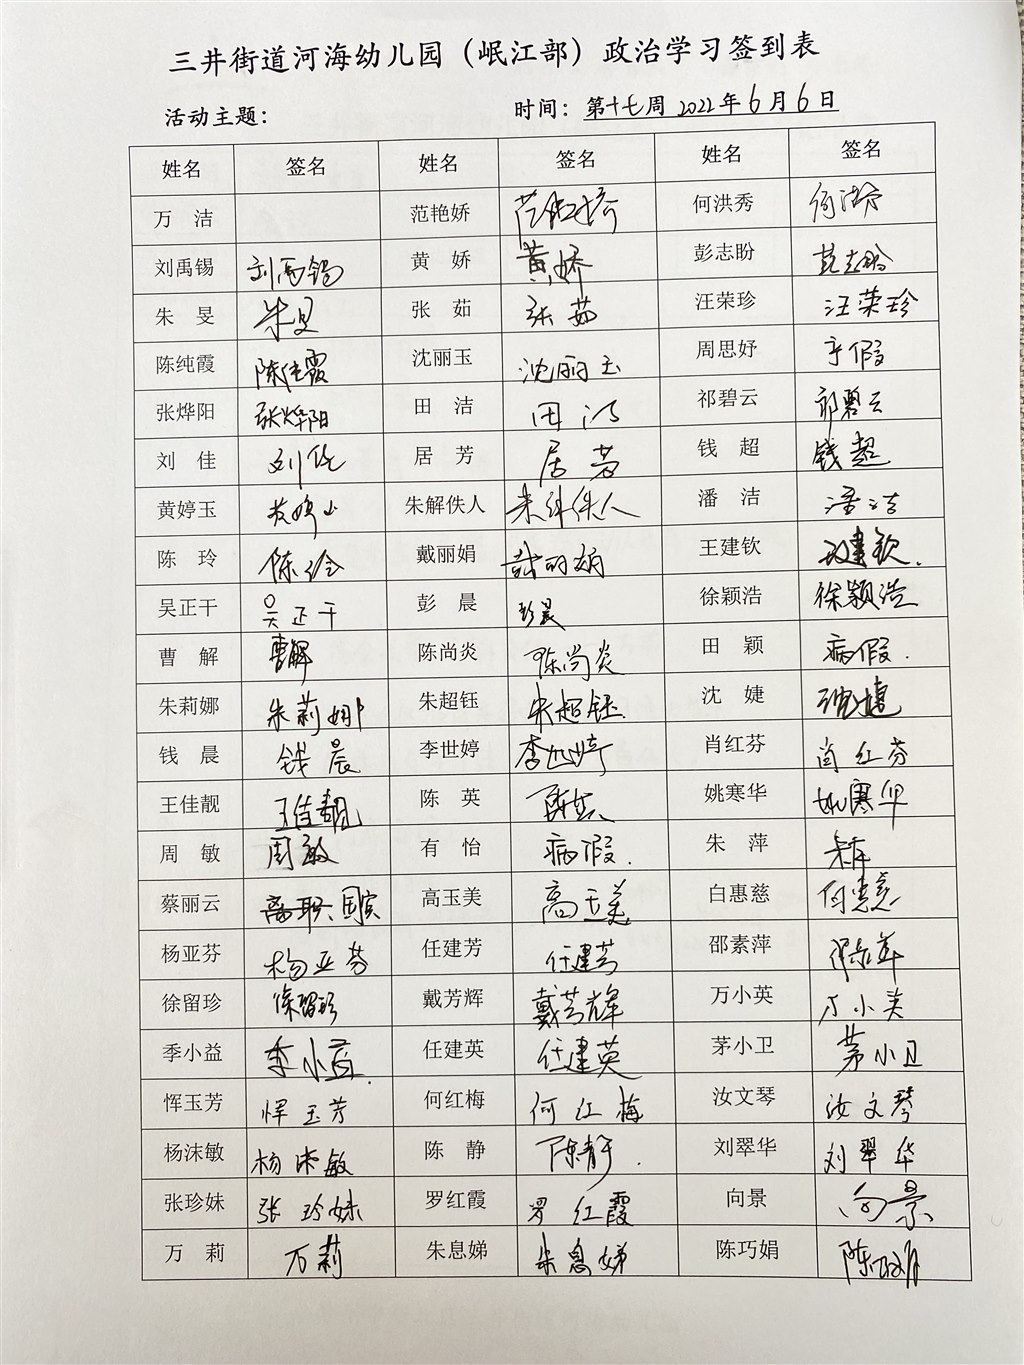 三井街道河海幼儿园（岷江部）政治学习签到表
活动主题： 时间：第十七周 2022年6月6日
姓名 签名 姓名 签名 姓名 签名
万 洁 范艳娇 范艳娇 何洪秀 何洪秀
刘禹锡 刘禹锡 黄 娇 黄娇 彭志盼 彭志盼
朱 旻 朱旻 张 茹 张茹 汪荣珍 汪荣珍
陈纯霞 陈纯霞 沈丽玉 沈丽玉 周思妤 产假
张烨阳 张烨阳 田 洁 田洁 祁碧云 祁碧云
刘 佳 刘佳 居 芳 居芳 钱 超 钱超
黄婷玉 黄婷玉 朱解佚人 朱解佚人 潘 洁 潘洁
陈 玲 陈玲 戴丽娟 戴丽娟 王建钦 王建钦.
吴正干 吴正干 彭 晨 彭晨 徐颖浩 徐颖浩
曹 解 曹解 陈尚炎 陈尚炎 田 颖 病假.
朱莉娜 朱莉娜 朱超钰 朱超钰 沈 婕 沈婕
钱 晨 钱晨 李世婷 李世婷 肖红芬 肖红芬
王佳靓 王佳靓 陈 英 陈英 姚寒华 姚寒华
周 敏 周敏 有 怡 病假. 朱 萍 朱萍
蔡丽云 离职 高玉美 高玉美 白惠慈 白惠慈
杨亚芬 杨亚芬 任建芳 任建芳 邵素萍 邵素萍
徐留珍 徐留珍 戴芳辉 戴芳辉 万小英 万小英
季小益 季小益. 任建英 任建英 茅小卫 茅小卫
恽玉芳 恽玉芳 何红梅 何红梅 汝文琴 汝文琴
杨沫敏 杨沫敏 陈 静 陈静. 刘翠华 刘翠华
张珍妹 张珍妹 罗红霞 罗红霞 向景 向景
万 莉 万莉 朱息娣 朱息娣 陈巧娟 陈巧娟